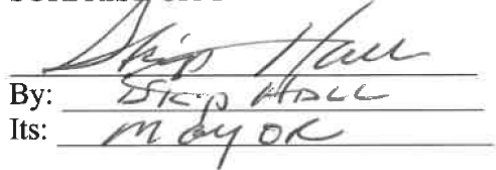 Skip Hall
By: Skip HALL
Its: MAYOR